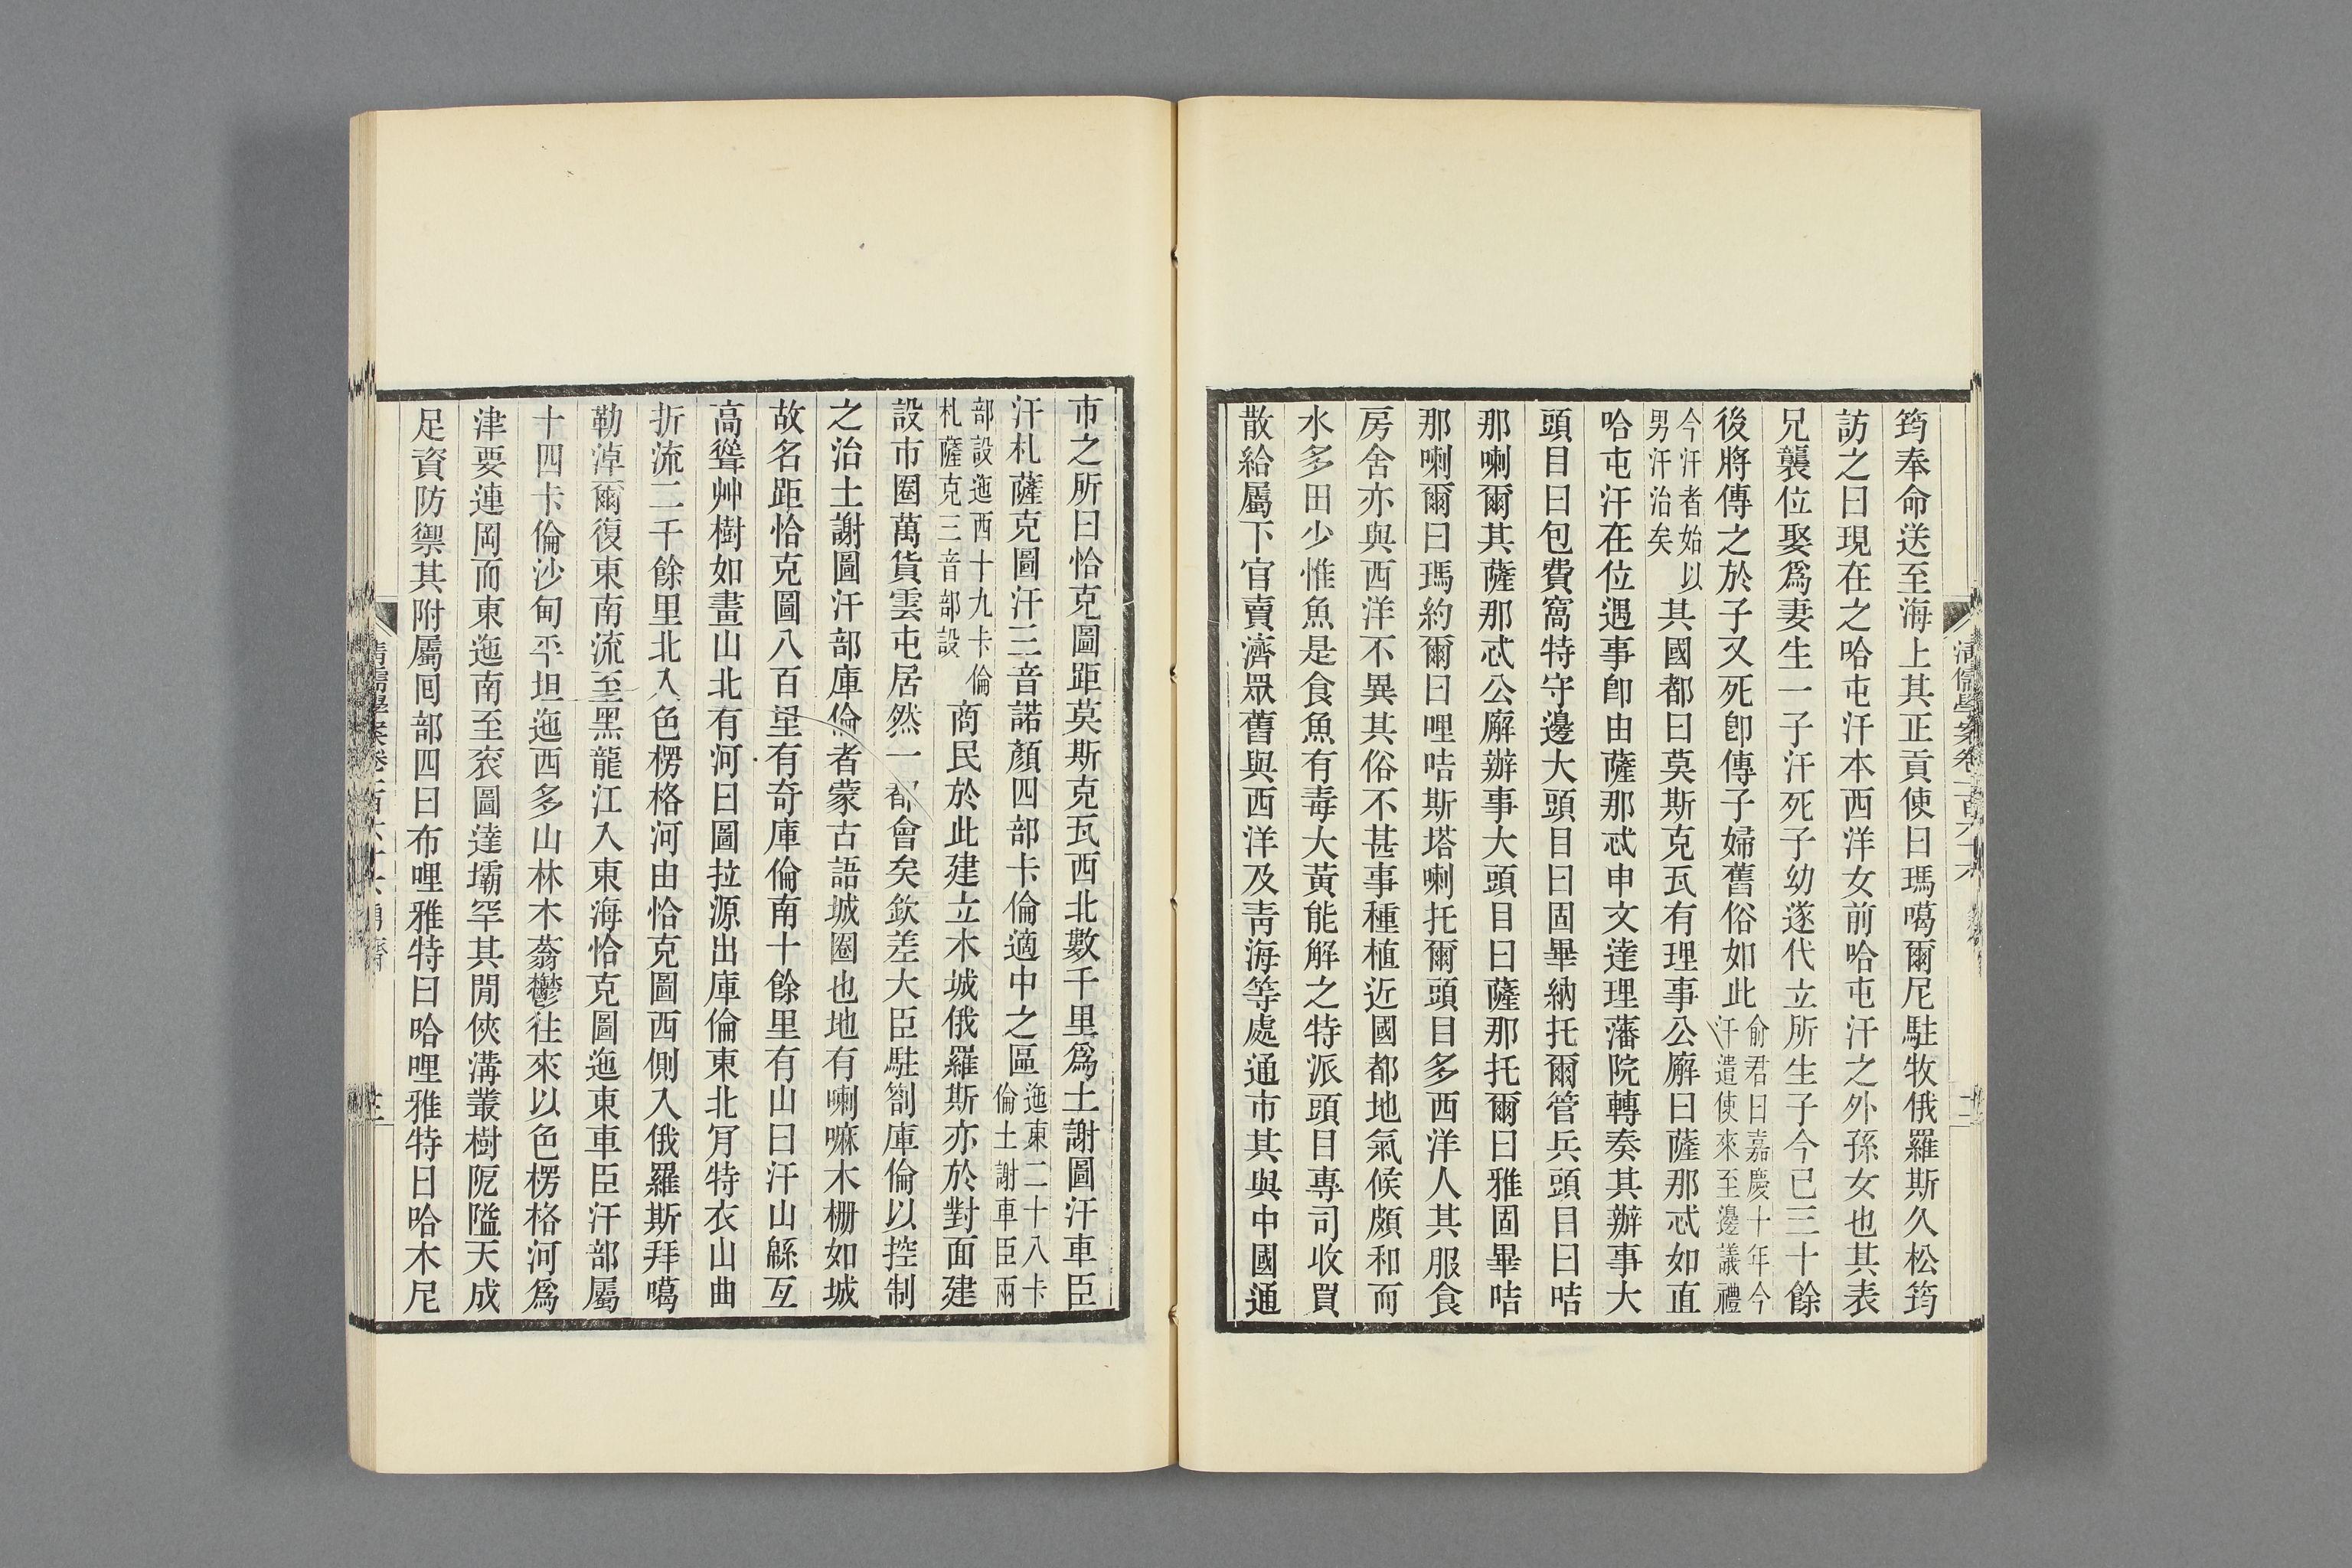 筠奉命送至海上其正貢使曰瑪噶爾尼駐牧俄羅斯久松筠
訪之曰現在之哈屯汗本西洋女前哈屯汗之外孫女也其表
兄襲位娶爲妻生一子汗死子幼遂代立所生子今已三十餘
後將傳之於子又死卽傳子婦舊俗如此俞君曰嘉慶十年今
汗遣使來至邊議禮
今汗者始以
男汗治矣其國都曰莫斯克瓦有理事公廨曰薩那忒如直
哈屯汗在位遇事卽由薩那忒申文達理藩院轉奏其辦事大
頭目曰包費窩特守邊大頭目曰固畢納托爾管兵頭目曰咭
那喇爾其薩那忒公廨辦事大頭目曰薩那托爾曰雅固畢咭
那喇爾曰瑪約爾曰哩咭斯塔喇托爾頭目多西洋人其服食
房舍亦與西洋不異其俗不甚事種植近國都地氣候頗和而
水多田少惟魚是食魚有毒大黃能解之特派頭目專司收買
散給屬下官賣濟眾舊與西洋及青海等處通市其與中國通
清儒學案卷一百六十六
市之所曰恰克圖距莫斯克瓦西北數千里爲土謝圖汗車臣
汗札薩克圖汗三音諾顏四部卡倫適中之區迤東二十八卡
倫土謝車臣兩
部設迤西十九卡倫
札薩克三音部設商民於此建立木城俄羅斯亦於對面建
設市圈萬貨雲屯居然一都會矣欽差大臣駐劄庫倫以控制
之治土謝圖汗部庫倫者蒙古語城圈也地有喇嘛木柵如城
故名距恰克圖八百里有奇庫倫南十餘里有山曰汗山緜亙
高聳艸樹如畫山北有河曰圖拉源出庫倫東北肯特衣山曲
折流二千餘里北入色楞格河由恰克圖西側入俄羅斯拜噶
勒淖爾復東南流至黑龍江入東海恰克圖迤東車臣汗部屬
十四卡倫沙甸平坦迤西多山林木蓊鬱往來以色楞格河爲
津要連岡而東迤南至袞圖達壩罕其閒俠溝叢樹阨隘天成
足資防禦其附屬囘部四曰布哩雅特曰哈哩雅特曰哈木尼